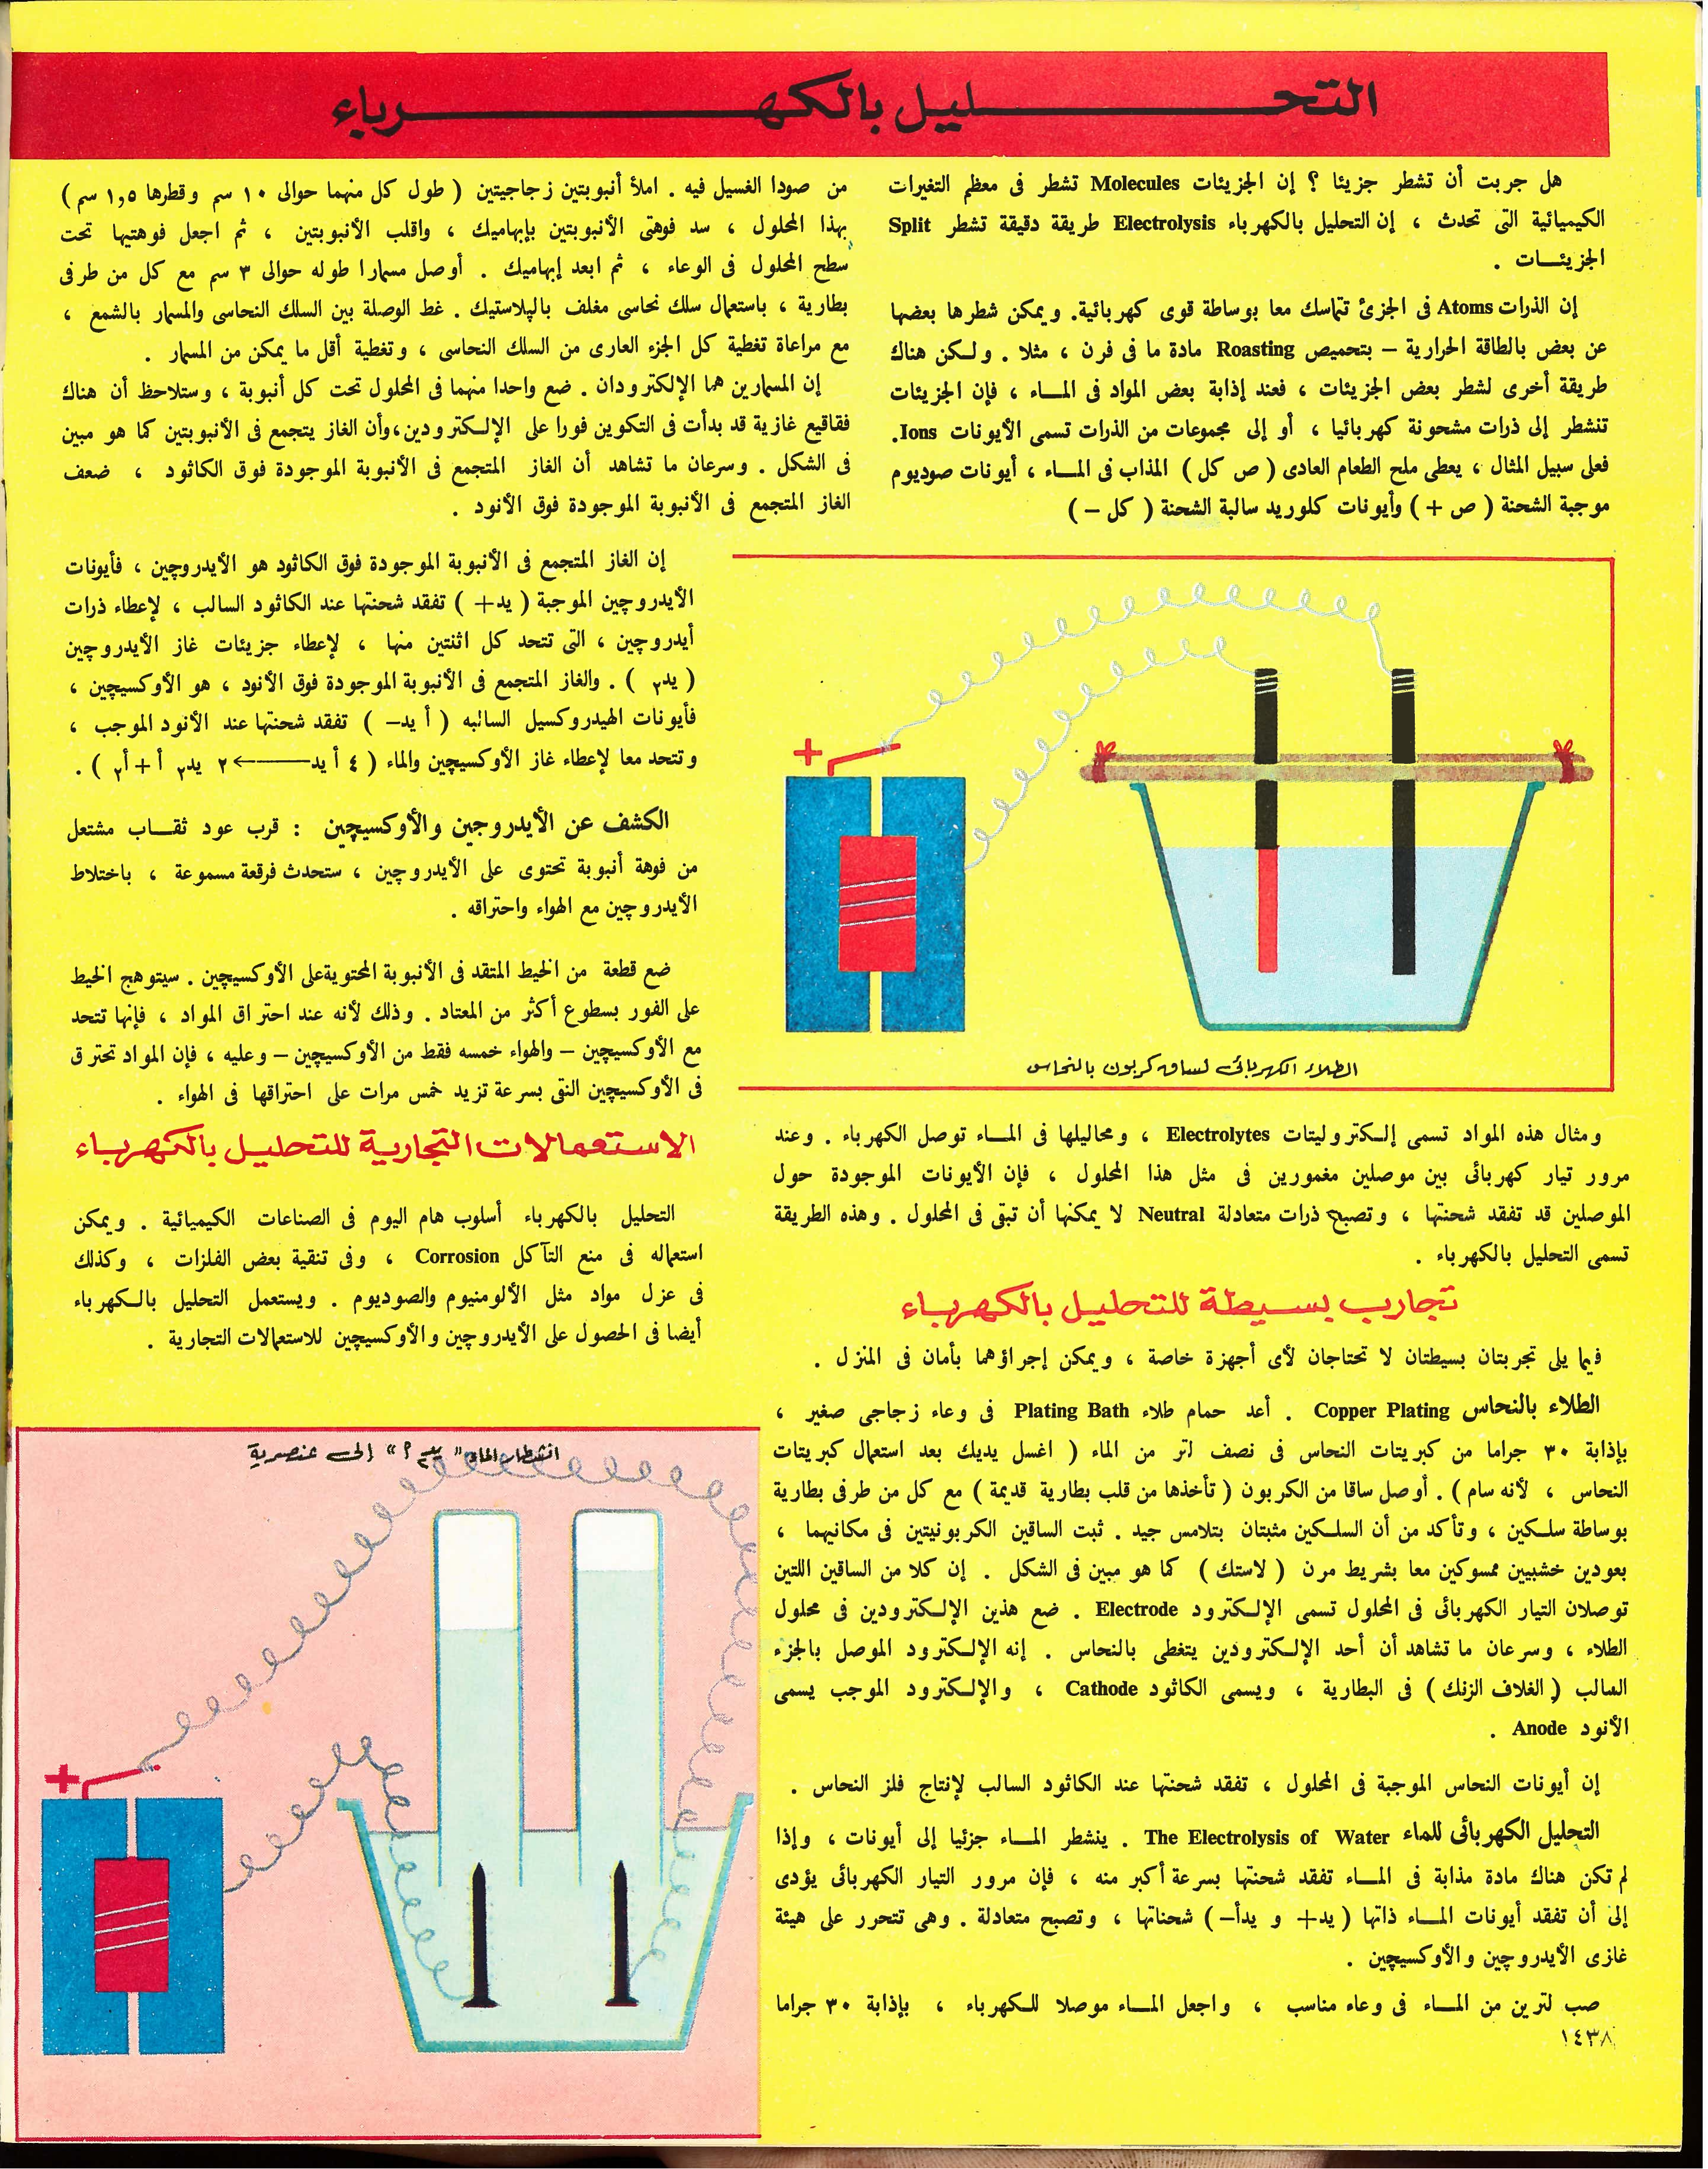 التحليل بالكهرباء
هل جربت أن تشطر جزيئا ؟ إن الجزيئات Molecules تشطر فى معظم التغيرات
الكيميائية التى تحدث ، إن التحليل بالكهرباء Electrolysis طريقة دقيقة تشطر Split
الجزيئات .
إن الذرات Atoms فى الجزئ تتماسك معا بوساطة قوى كهربائية. ويمكن شطرها بعضها
عن بعض بالطاقة الحرارية – بتحميص Roasting مادة ما فى فرن ، مثلا . ولكن هناك
طريقة أخرى لشطر بعض الجزيئات ، فعند إذابة بعض المواد فى الماء ، فإن الجزيئات
تنشطر إلى ذرات مشحونة كهربائيا ، أو إلى مجموعات من الذرات تسمى الأيونات Ions.
فعلى سبيل المثال ، يعطى ملح الطعام العادى ( ص كل ) المذاب فى الماء ، أيونات صوديوم
موجبة الشحنة ( ص + ) وأيونات كلوريد سالبة الشحنة ( كل – )
الطلاء الكهربائى لساق كربون بالنحاس
ومثال هذه المواد تسمى إلكتروليتات Electrolytes ، ومحاليلها فى الماء توصل الكهرباء . وعند
مرور تيار كهربائى بين موصلين مغمورين فى مثل هذا المحلول ، فإن الأيونات الموجودة حول
الموصلين قد تفقد شحنتها ، وتصبح ذرات متعادلة Neutral لا يمكنها أن تبقى فى المحلول . وهذه الطريقة
تسمى التحليل بالكهرباء .
تجارب بسيطة للتحليل بالكهرباء
فيما يلى تجربتان بسيطتان لا تحتاجان لأى أجهزة خاصة ، ويمكن إجراؤهما بأمان فى المنزل .
الطلاء بالنحاس Copper Plating . أعد حمام طلاء Plating Bath فى وعاء زجاجى صغير ،
بإذابة ٣٠ جراما من كبريتات النحاس فى نصف لتر من الماء ( اغسل يديك بعد استعمال كبريتات
النحاس ، لأنه سام ) . أوصل ساقا من الكربون ( تأخذها من قلب بطارية قديمة ) مع كل من طرفى بطارية
بوساطة سلكين ، وتأكد من أن السلكين مثبتان بتلامس جيد . ثبت الساقين الكربونيتين فى مكانيهما ،
بعودين خشبيين ممسوكين معا بشريط مرن ( لاستك ) كما هو مبين فى الشكل . إن كلا من الساقين اللتين
توصلان التيار الكهربائى فى المحلول تسمى الإلكترود Electrode . ضع هذين الإلكترودين فى محلول
الطلاء ، وسرعان ما تشاهد أن أحد الإلكترودين يتغطى بالنحاس . إنه الإلكترود الموصل بالجزء
السالب ( الغلاف الزنك ) فى البطارية ، ويسمى الكاثود Cathode ، والإلكترود الموجب يسمى
الأنود Anode .
إن أيونات النحاس الموجبة فى المحلول ، تفقد شحنتها عند الكاثود السالب لإنتاج فلز النحاس .
التحليل الكهربائى للماء The Electrolysis of Water . ينشطر الماء جزئيا إلى أيونات ، وإذا
لم تكن هناك مادة مذابة فى الماء تفقد شحنتها بسرعة أكبر منه ، فإن مرور التيار الكهربائى يؤدى
إلى أن تفقد أيونات الماء ذاتها ( يد+ و يدأ– ) شحناتها ، وتصبح متعادلة . وهى تتحرر على هيئة
غازى الأيدروچين والأوكسيچين .
صب لترين من الماء فى وعاء مناسب ، واجعل الماء موصلا للكهرباء ، بإذابة ٣٠ جراما
١٤٣٨
من صودا الغسيل فيه . املأ أنبوبتين زجاجيتين ( طول كل منهما حوالى ١٠ سم وقطرها ١,٥ سم )
بهذا المحلول ، سد فوهتى الأنبوبتين بإبهاميك ، واقلب الأنبوبتين ، ثم اجعل فوهتيها تحت
سطح المحلول فى الوعاء ، ثم ابعد إبهاميك . أوصل مسمارا طوله حوالى ٣ سم مع كل من طرفى
بطارية ، باستعمال سلك نحاسى مغلف بالپلاستيك . غط الوصلة بين السلك النحاسى والمسمار بالشمع ،
مع مراعاة تغطية كل الجزء العارى من السلك النحاسى ، وتغطية أقل ما يمكن من المسمار .
إن المسمارين هما الإلكترودان . ضع واحدا منهما فى المحلول تحت كل أنبوبة ، وستلاحظ أن هناك
فقاقيع غازية قد بدأت فى التكوين فورا على الإلكترودين،وأن الغاز يتجمع فى الأنبوبتين كما هو مبين
فى الشكل . وسرعان ما تشاهد أن الغاز المتجمع فى الأنبوبة الموجودة فوق الكاثود ، ضعف
الغاز المتجمع فى الأنبوبة الموجودة فوق الأنود .
إن الغاز المتجمع فى الأنبوبة الموجودة فوق الكاثود هو الأيدروچين ، فأيونات
الأيدروچين الموجبة ( يد+ ) تفقد شحنتها عند الكاثود السالب ، لإعطاء ذرات
أيدروچين ، التى تتحد كل اثنتين منها ، لإعطاء جزيئات غاز الأيدروچين
( يد٢ ) . والغاز المتجمع فى الأنبوبة الموجودة فوق الأنود ، هو الأوكسيچين ،
فأيونات الهيدروكسيل السالبه ( أ يد– ) تفقد شحنتها عند الأنود الموجب ،
وتتحد معا لإعطاء غاز الأوكسيچين والماء ( ٤ أ يد ⟵ ٢ يد٢ أ + أ٢ ) .
الكشف عن الأيدروجين والأوكسيچين : قرب عود ثقاب مشتعل
من فوهة أنبوبة تحتوى على الأيدروچين ، ستحدث فرقعة مسموعة ، باختلاط
الأيدروچين مع الهواء واحتراقه .
ضع قطعة من الخيط المتقد فى الأنبوبة المحتويةعلى الأوكسيچين . سيتوهج الخيط
على الفور بسطوع أكثر من المعتاد . وذلك لأنه عند احتراق المواد ، فإنها تتحد
مع الأوكسيچين – والهواء خمسه فقط من الأوكسيچين – وعليه ، فإن المواد تحترق
فى الأوكسيچين النقى بسرعة تزيد خمس مرات على احتراقها فى الهواء .
الاستعمالات التجارية للتحليل بالكهرباء
التحليل بالكهرباء أسلوب هام اليوم فى الصناعات الكيميائية . ويمكن
استعماله فى منع التآكل Corrosion ، وفى تنقية بعض الفلزات ، وكذلك
فى عزل مواد مثل الألومنيوم والصوديوم . ويستعمل التحليل بالكهرباء
أيضا فى الحصول على الأيدروچين والأوكسيچين للاستعمالات التجارية .
انشطار الماء " يد٢ أ " إلى عنصرية